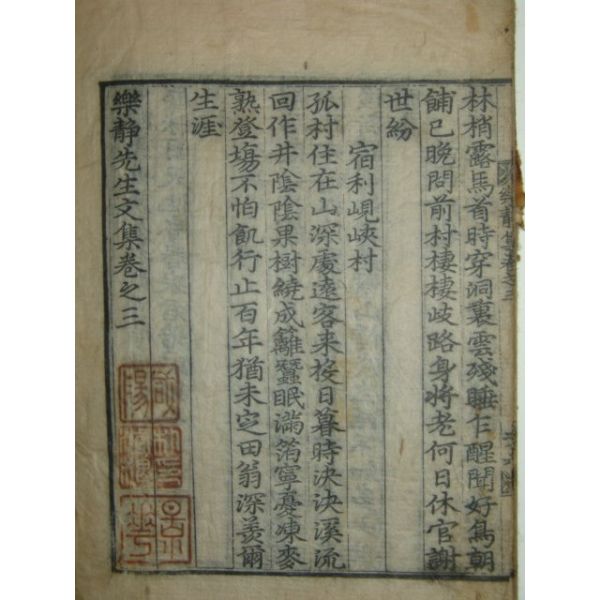 林梢露馬首時穿洞裏雲殘睡乍醒聞好鳥朝
餔已晩問前村棲棲歧路身將老何日休官謝
世紛
宿利峴峽村
孤村住在山深處遠客来投日暮時決決溪流
回作井陰陰果樹繞成籬蠶眠滿箔寧憂凍麥
熟登場不怕飢行止百年猶未定田翁深羡爾
生涯
樂静先生文集卷之三